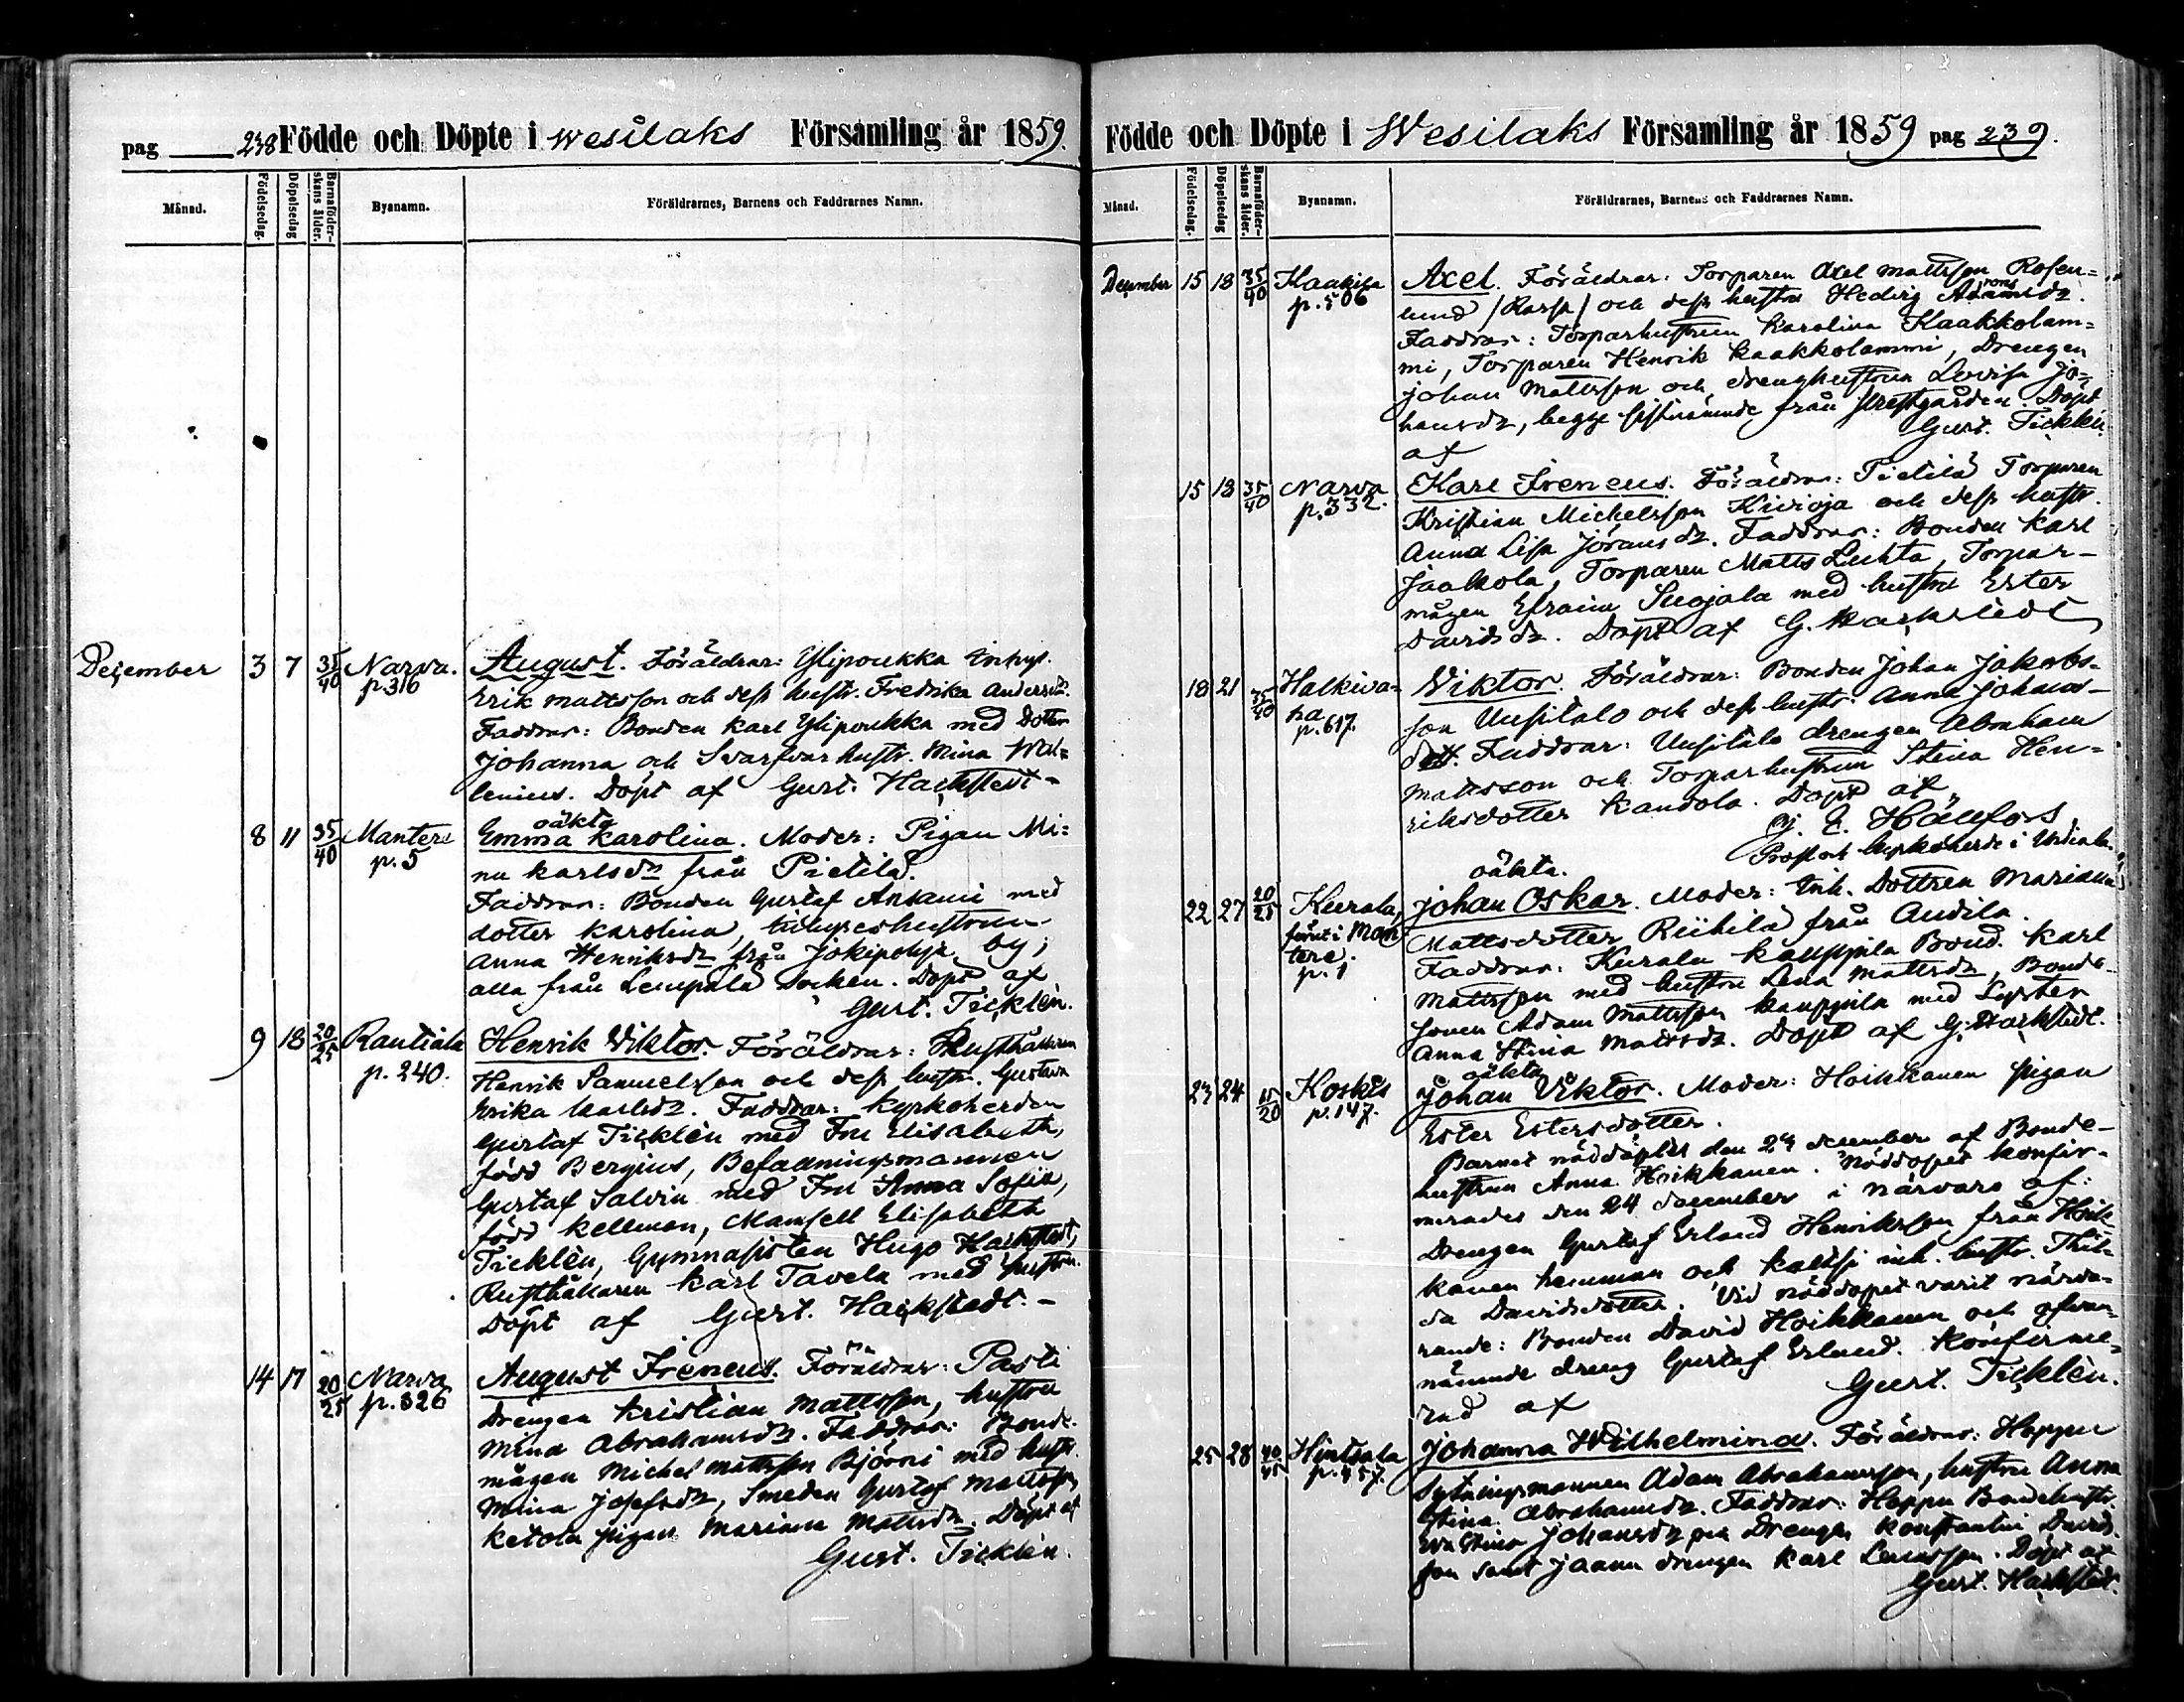 pag 238 Födde och Döpte i Wesilaks Församling år 1859.
Månad.
Födelsedag.
Döpelsedag
Barnaföder-
skans ålder.
Byanamn.
Föräldrarnes, Barnens och Faddrarnes Namn.
December 3 7 35/40 Narva. August. Föräldrar: Ylipoukka Inhys.
p. 316 Erik Mattsson och dess hustr. Fredrika Andersdr.
Faddrar: Bonden Karl Ylipoukka med Dotter
Johanna och Svarfvar hustr. Mina Wal=
lenius. Döpt af Gust. Hackstedt -
oäkta
8 11 35/40 Mantere Emma Karolina. Moder: Pigan Mi=
p. 5 na Karlsdr från Pietilä.
Faddrar: Bonden Gustaf Anttani med
dotter Karolina, inhyseshustrun
Anna Henriksdr från Jokipohja by,
alla från Lempälä socken. Döpt af
Gust. Ticklén.
9 18 20/25 Rautiala Henrik Viktor. Föräldrar: Rusthållaren
p. 240. Henrik Samuelsson och dess hustr. Gustava
Erika Karlsdr. Faddrar: Kyrkoherden
Gustaf Ticklén med Fru Elisabeth,
född Bergius, Befallningsmannen
Gustaf Salvin med Fru Anna Sofia,
född Kellman, Mamsell Elisabeth
Ticklén, Gymnasisten Hugo Hackstedt,
Rusthållaren Karl Tavela med hustru.
Döpt af Gust. Hackstedt. -
14 17 20/25 Narva August Ireneus. Föräldrar: Pasti
p. 326 Drengen Kristian Mattsson, hustru
Mina Abrahamsdr. Faddrar: Bonde-
mågen Michel Mattsson Björni med hustr.
Mina Josefsdr, Smeden Gustaf Mattsson,
Ketola pigan Mariana Mattsdr. Döpt af
Gust. Ticklén.
Födde och Döpte i Wesilaks Församling år 1859 pag 239.
Månad.
Födelsedag.
Döpelsedag
Barnaföder-
skans ålder.
Byanamn.
Föräldrarnes, Barnens och Faddrarnes Namn.
December 15 18 35/40 Kaakila Axel. Föräldrar: Torparen Axel Mattsson Rosen=
p. 506 lund /Rossa/ och dess hustru Hedvig
Faddrar: Torparhustrun Karolina Kaakkolam=
mi, Torparen Henrik Kaakkolammi, Drengen
Johan Mattsson och drenghustrun Lovisa Jo=
hansdr, begge sistnämnde från Prestgården. Döpt
af Gust. Ticklén.
15 18 35/40 Narva Karl Ireneus. Föräldrar: Pietilä Torparen
p. 332. Kristian Michelsson Kivioja och dess hustr.
Anna Lisa Jöransdr. Faddrar: Bonden Karl
Jaakola, Torparen Matts Luhta, Torpar-
mågen Efraim Suojala med hustru Ester
Davidsdr. Döpt af G. Hackstedt
18 21 35/40 Halkiva= Viktor. Föräldrar: Bonden Johan Jakobs-
ha son Uusitalo och dess hustr. Anna Johans-
p. 617. dott. Faddrar: Uusitalo drengen Abraham
Mattsson och Torparhustrun Stina Hen=
riksdotter Kandola. Döpt af
Hänfors,
Prost och kyrkoherde i Urdiala.
oäkta.
22 27 20/25 Kurala, Johan Oskar. Moder: Inh. Dottren Mariana
förut i Man Mattsdotter Riihilä från Audila.
tere. Faddrar: Kurala Kauppila Bond. Karl
p. 1 Mattsson med hustru Lena Mattsdr, Bonde-
sonen Adam Mattsson Kauppila med Syster
Anna Stina Mattsdr. Döpt af G. Hackstedt.
oäkta
23 24 15/20 Koskis Johan Viktor. Moder: Hoikkanen pigan
p. 147. Ester Estersdotter.
Barnet nöddöptes den 24 december af Bonde-
hustrun Anna Hoikkanen. Nöddopet konfir-
merades den 24 december i närvaro af:
Drengen Gustaf Erland Henriksson från Hoik-
kanen hemman och Kaltsi inh. hustr. Thil=
da Davidsdotter. Vid nöddopet varit närva-
rande: Bonden David Hoikkanen och ofvan-
nämnde dreng Gustaf Erland. Konfirme=
rad af Gust. Ticklén.
25 28 40/45 Hintsala Johanna Wilhelmina. Föräldrar: Hoppu
p. 457. Sytningsmannen Adam Abrahamsson, hustru Anna
Stina Abrahamsdr. Faddrar: Hoppu Bondehustr.
Eva Stina Johansdr och Drengen Konstantin Davids-
son samt Jaana drengen Karl Leenasson. Döpt af
Gust. Hackstedt.